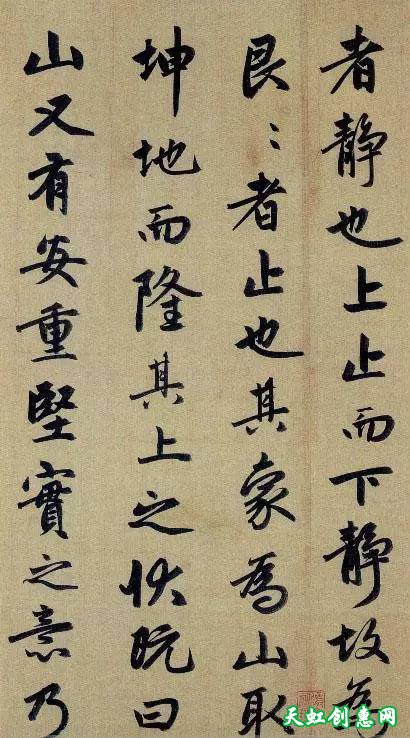 者靜也上止而下靜故為
艮〻者止也其象為山取
坤地而隆其上之状阮曰
山又有安重堅實之意乃
天虹创意网